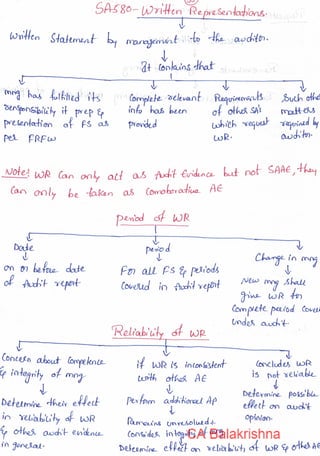 SA580- Written Representations.
Written Statement by management to the auditor.
It Contains that
mng has fulfilled its responsibility it prep & presentation of FS as per FRFW
Complete relevant info has been provided
Requirements of other SA's which request WR.
Such othe matters required by auditor.
Note: WR Can only act as Audit Evidence but not SAAE, they
Can only be taken as Corroborative AE
period of WR
Date
on or before date of Audit report
period
For all FS & periods Covered in Audit report
Change in mng
New mng shall give WR for Complete period Cove under audit
Reliability of WR
Concern about Competence & integrity of mng
Determine their effect in reliability of WR & other audit evidence in general.
if WR is inconsistent with other AE
Perform additional AP
Remains unresolved,
Consider integ
Determine effect on reliability of WR & other AE
Concludes WR is not reliable
Determine possible effect on audit opinion.
CA Balakrishna